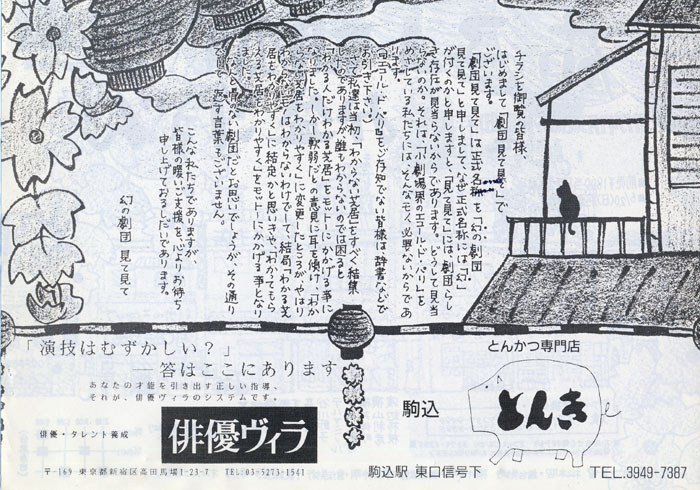 チラシを御覧の皆様、
はじめまして「劇団見て見て」で
ございます。
「劇団 見て見て」は正式名称を「幻の劇団
見て見て」と申しまして、なぜ正式名称には「幻」
が付くのかと申しますと「見て見て」には劇団らし
き存在が見当らないからであります。どうして見当
らないのか。それは、「小劇場界のエコール・ド・パリ」を
めざしている私たちには、そんなモノ必要ないからであ
ります。
(エコール・ド・パリをご存知でない皆様は辞書などで
お引き下さい)
さて、私達は当初、「わからない芝居」をすべく結集
したのでありますが、誰もわからないのでは困ると
「わかる人だけわかる芝居」をモットーにかかげる事に
なりました。しかし軟弱だとの意見に耳を傾け、「わか
らない芝居をわかりやすく」に変更したところが、やはり
わからないモノはわからないわけでして、結局「わかる芝
居をわかりやすく」に結定かと思いきや、「わかってもら
える芝居をわかりやすく」をモットーにかかげる事となり
ました。
なんと情ない劇団だとお思いでしょうが、その通り
返す言葉もございません。
こんな私たちでありますが、
皆様の暖いご支援を心よりお待ち
申し上げておるしだいであります。
幻の劇団 見て見て
「演技はむずかしい?」
―答はここにあります
あなたの才能を引き出す正しい指導、
それが、俳優ヴィラのシステムです。
俳優・タレント養成
俳優ヴィラ
〒-169 東京都新宿区高田馬場1-23-7 TEL:03-5273-1541
とんかつ専門店
駒込
とんき
駒込駅 東口信号下 TEL.3949-7387